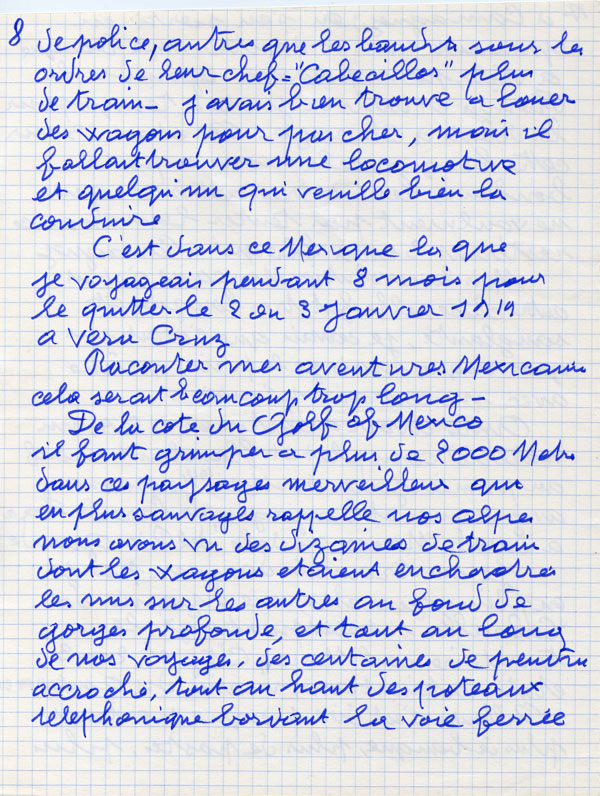 8 de police, autres que les bandits sous les
ordres de leur chef = "Cabecillos" plus
de train - j'avais bien trouvé a louer
des wagons pour pas cher, mais il
fallait trouver une locomotive
et quelqu'un qui veuille bien la
conduire
C'est dans ce Mexique la que
je voyageais pendant 8 mois pour
le quitter le 2 ou 3 Janvier 1919
a Vera Cruz
Raconter mes aventures Mexicaines
cela serait beaucoup trop long -
De la cote du Golf of Mexico
il faut grimper a plus de 2000 Metres
dans ces paysages merveilleux qui
en plus sauvages rappelle nos alpes
nous avons vu des dizaines de train
dont les wagons etaient enchevetrés
les uns sur les autres au fond de
gorges profonde, et tout au long
de nos voyages, des centaines de pendus
accroché, tout au haut des poteaux
telephonique bordant la voie ferrée